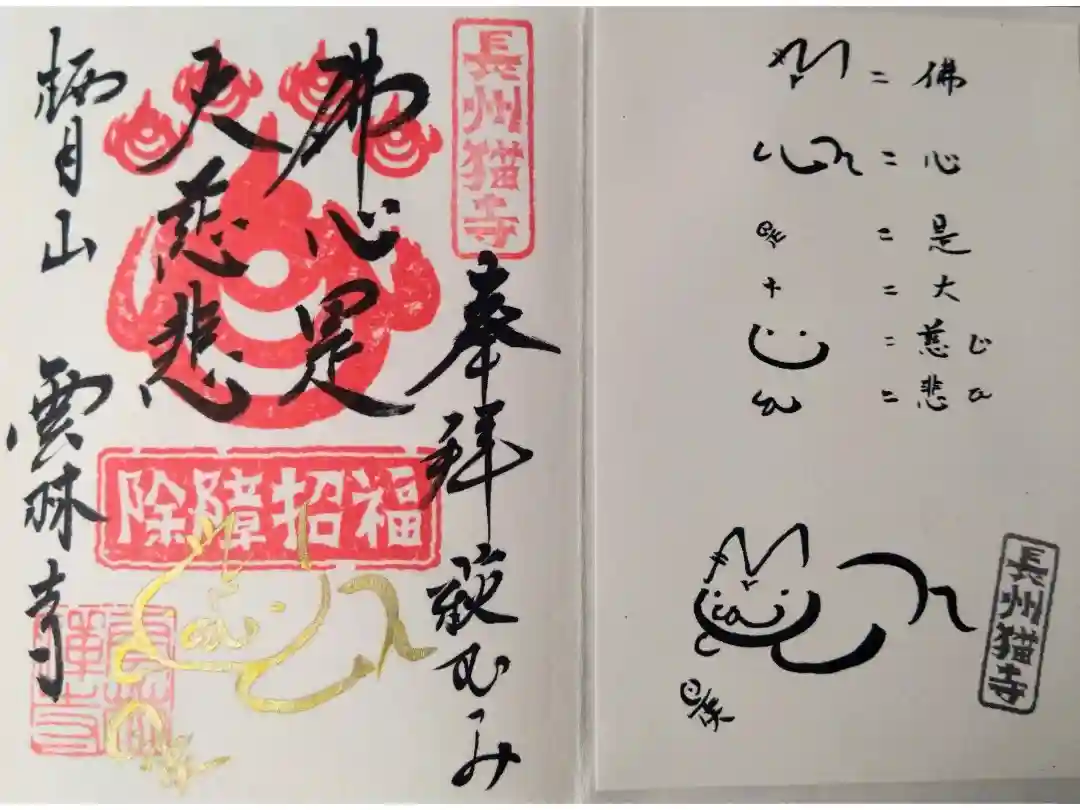 長州猫寺
奉拝
佛心是
大慈悲
除障招福
栖月山 雲林寺
= 佛
= 心
是 = 是
= 大
= 慈 じ
= 悲 ひ
長州猫寺